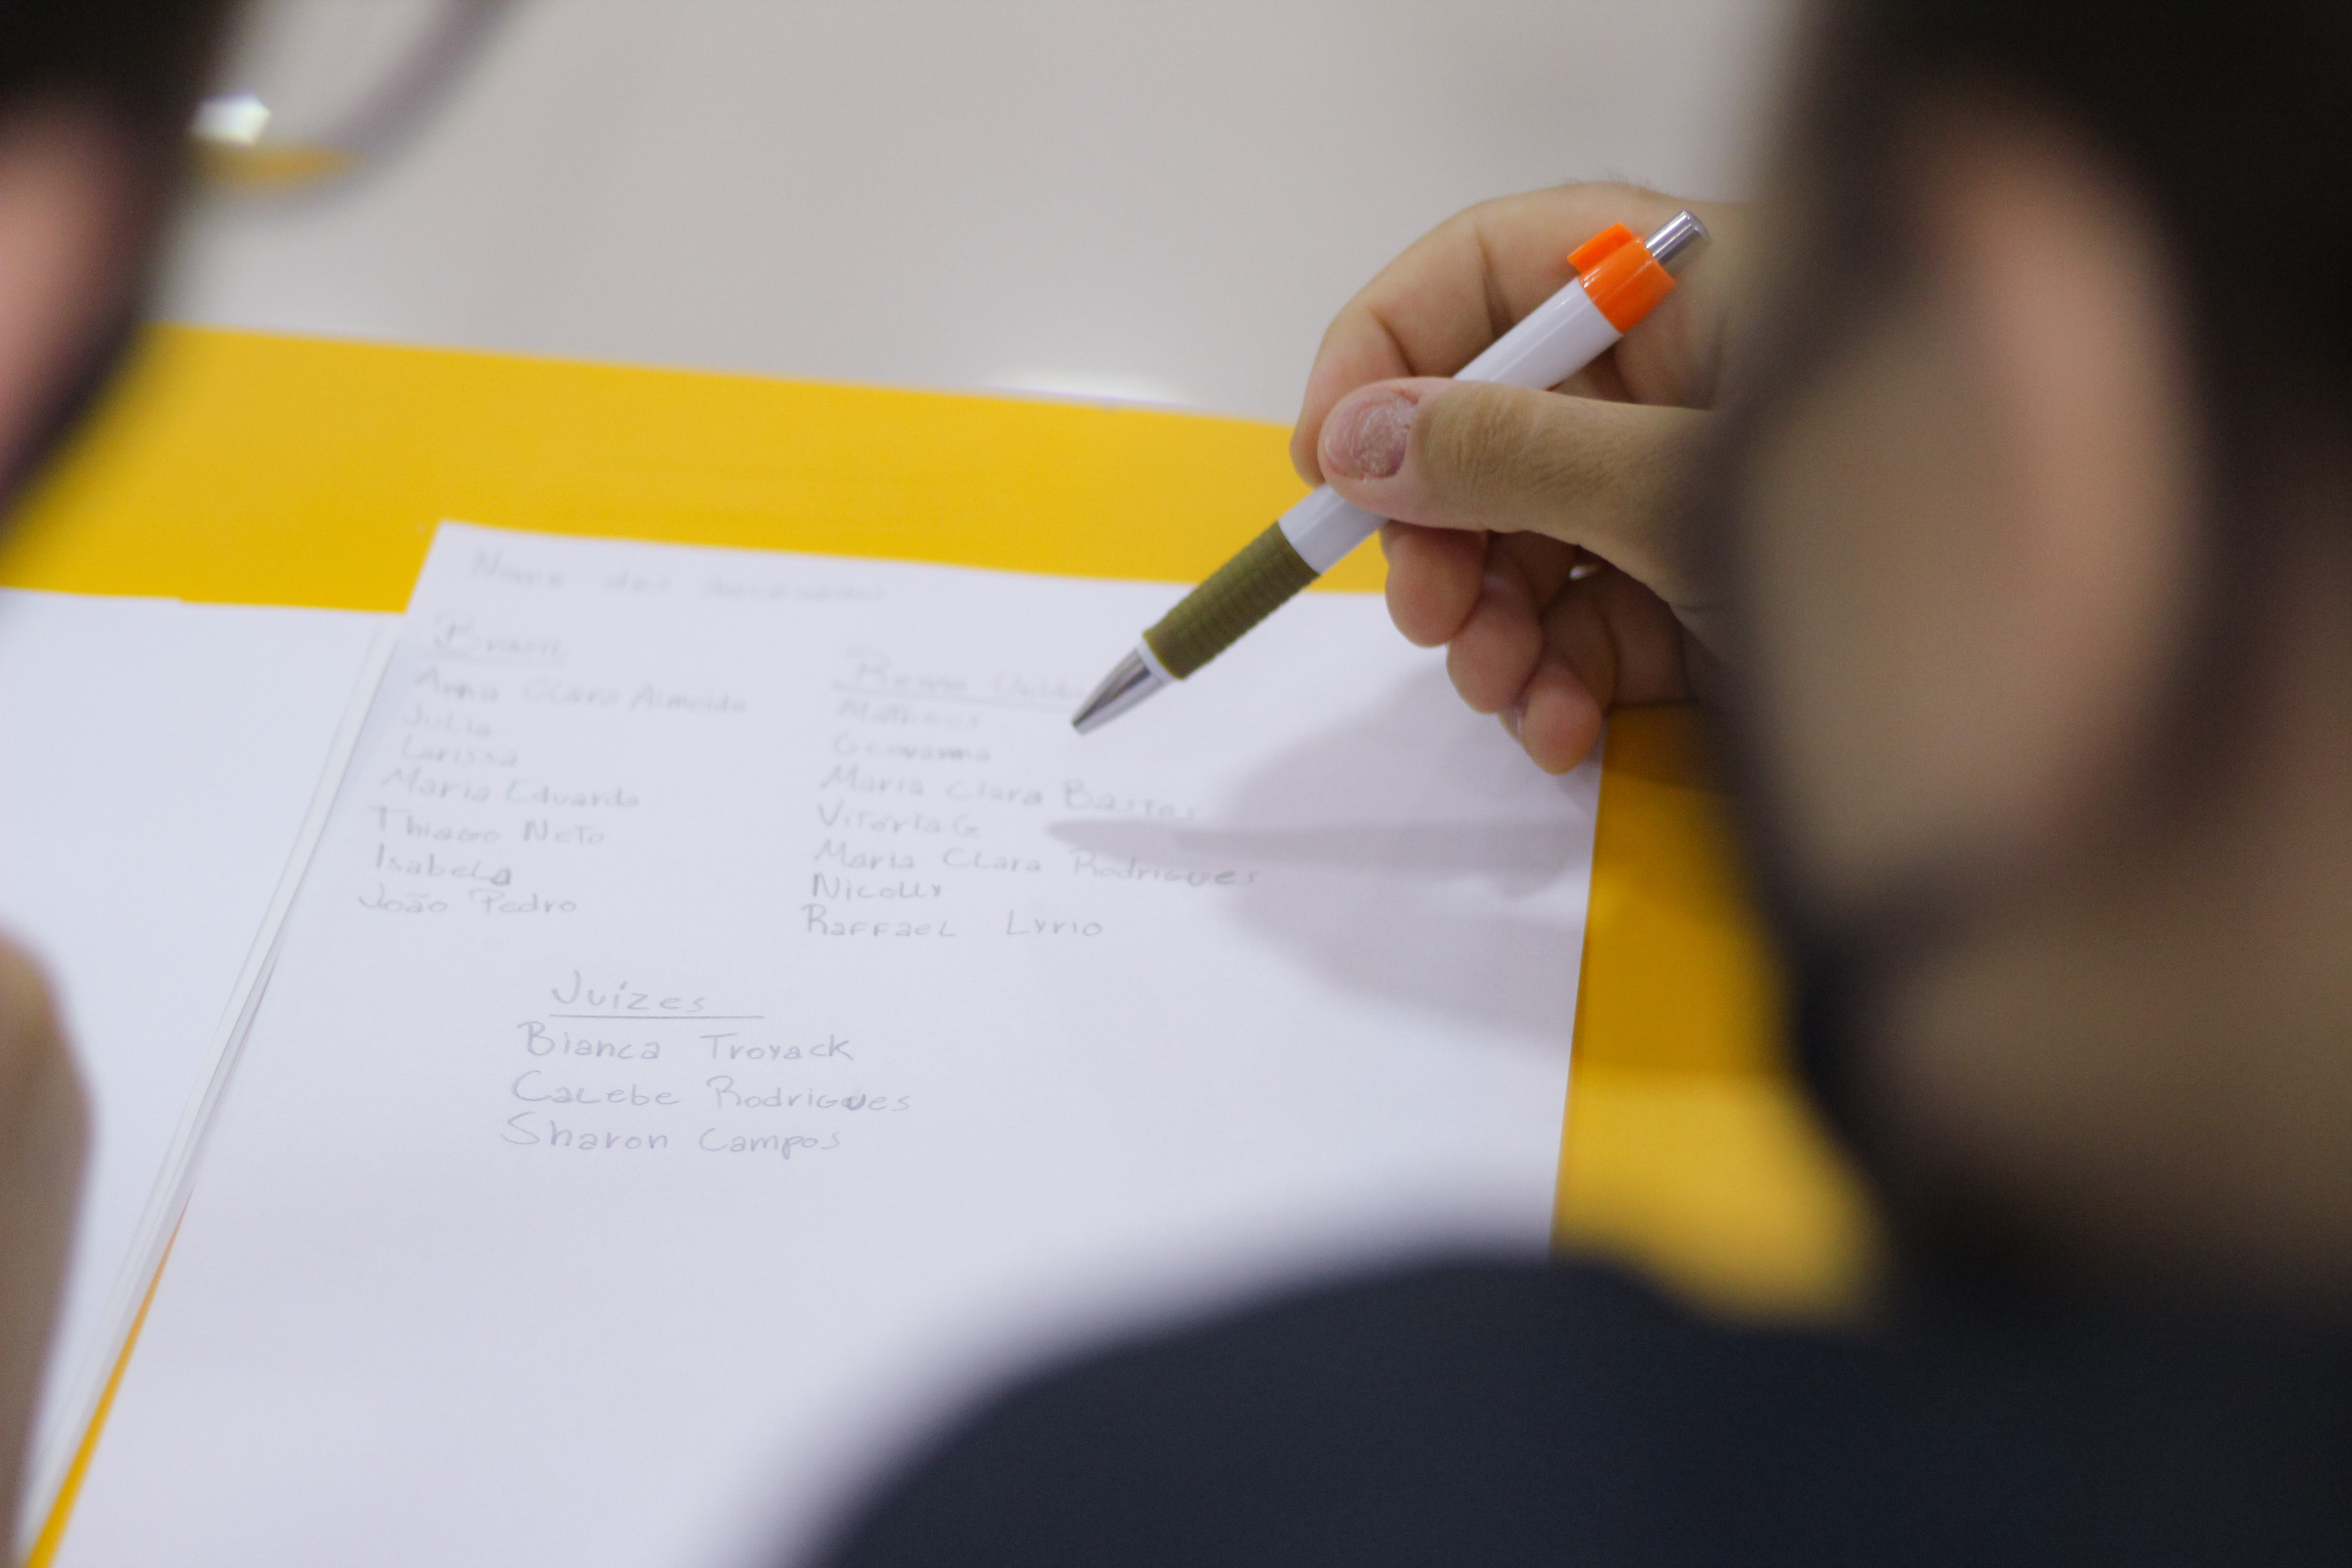 Nome dos
Brasil
Anna Clara Almeida
Julia
Larissa
Maria Eduarda
Thiago Neto
Isabela
João Pedro
Reino Unido
Matheus
Geovanna
Maria Clara Bastos
Vitória G
Maria Clara Rodrigues
Nicolly
Raffael Lyrio
Juízes
Bianca Troyack
Calebe Rodrigues
Sharon Campos